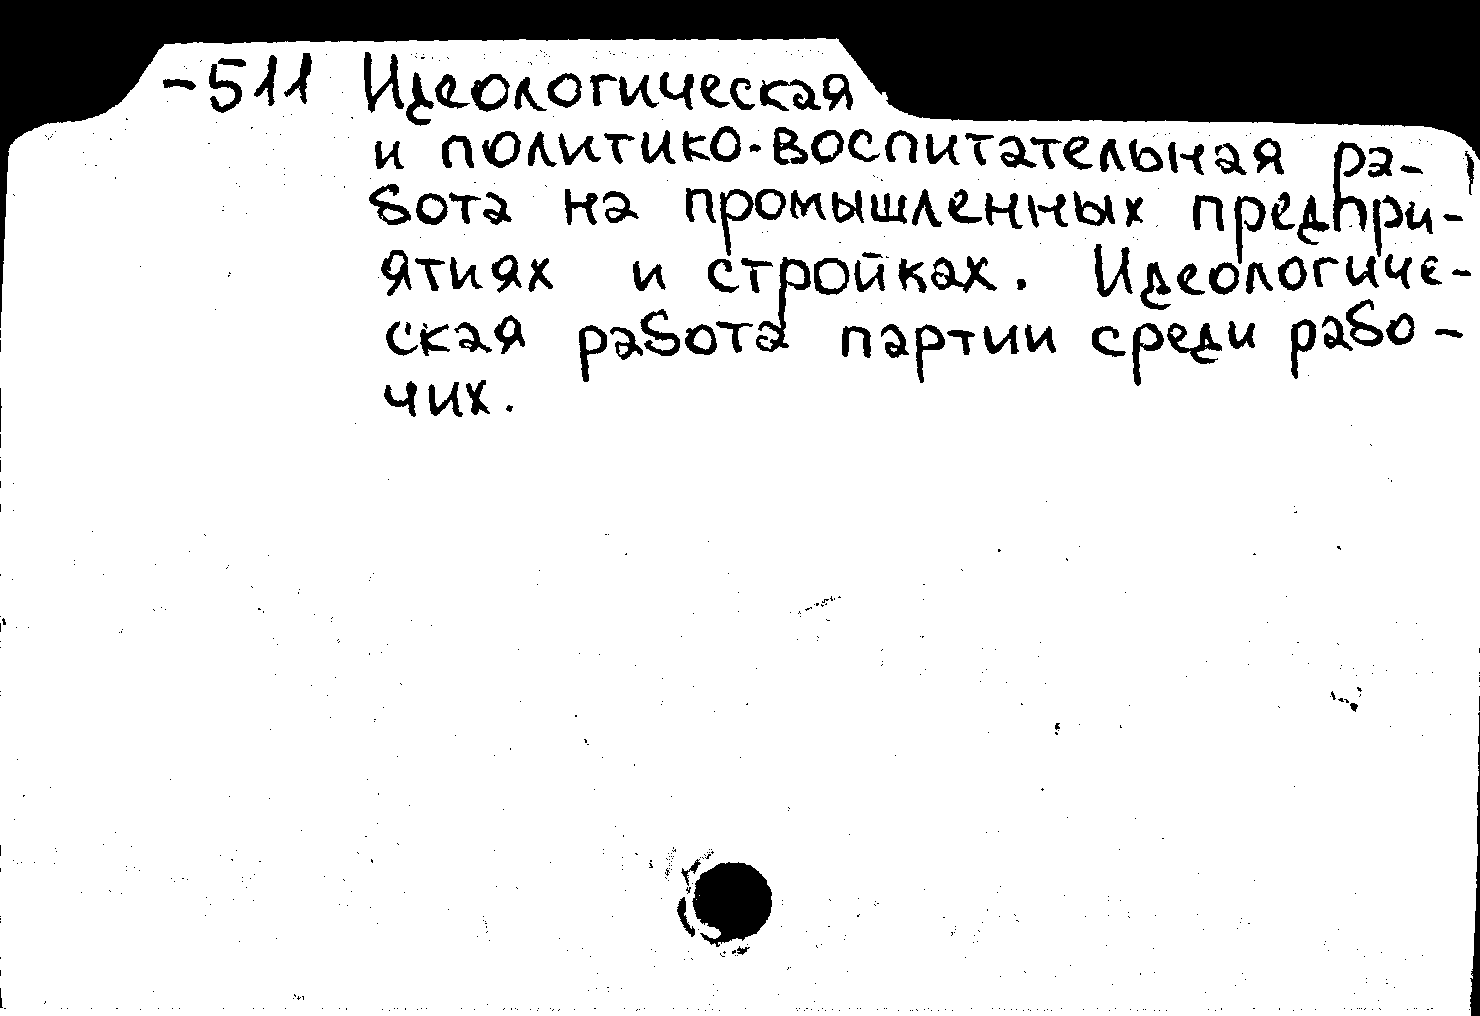 -511 Идеологическая
и политико-воспитательная ра-
бота на промышленных предпри-
ятиях и стройках. Идеологиче-
ская работа партии среди рабо-
чих.